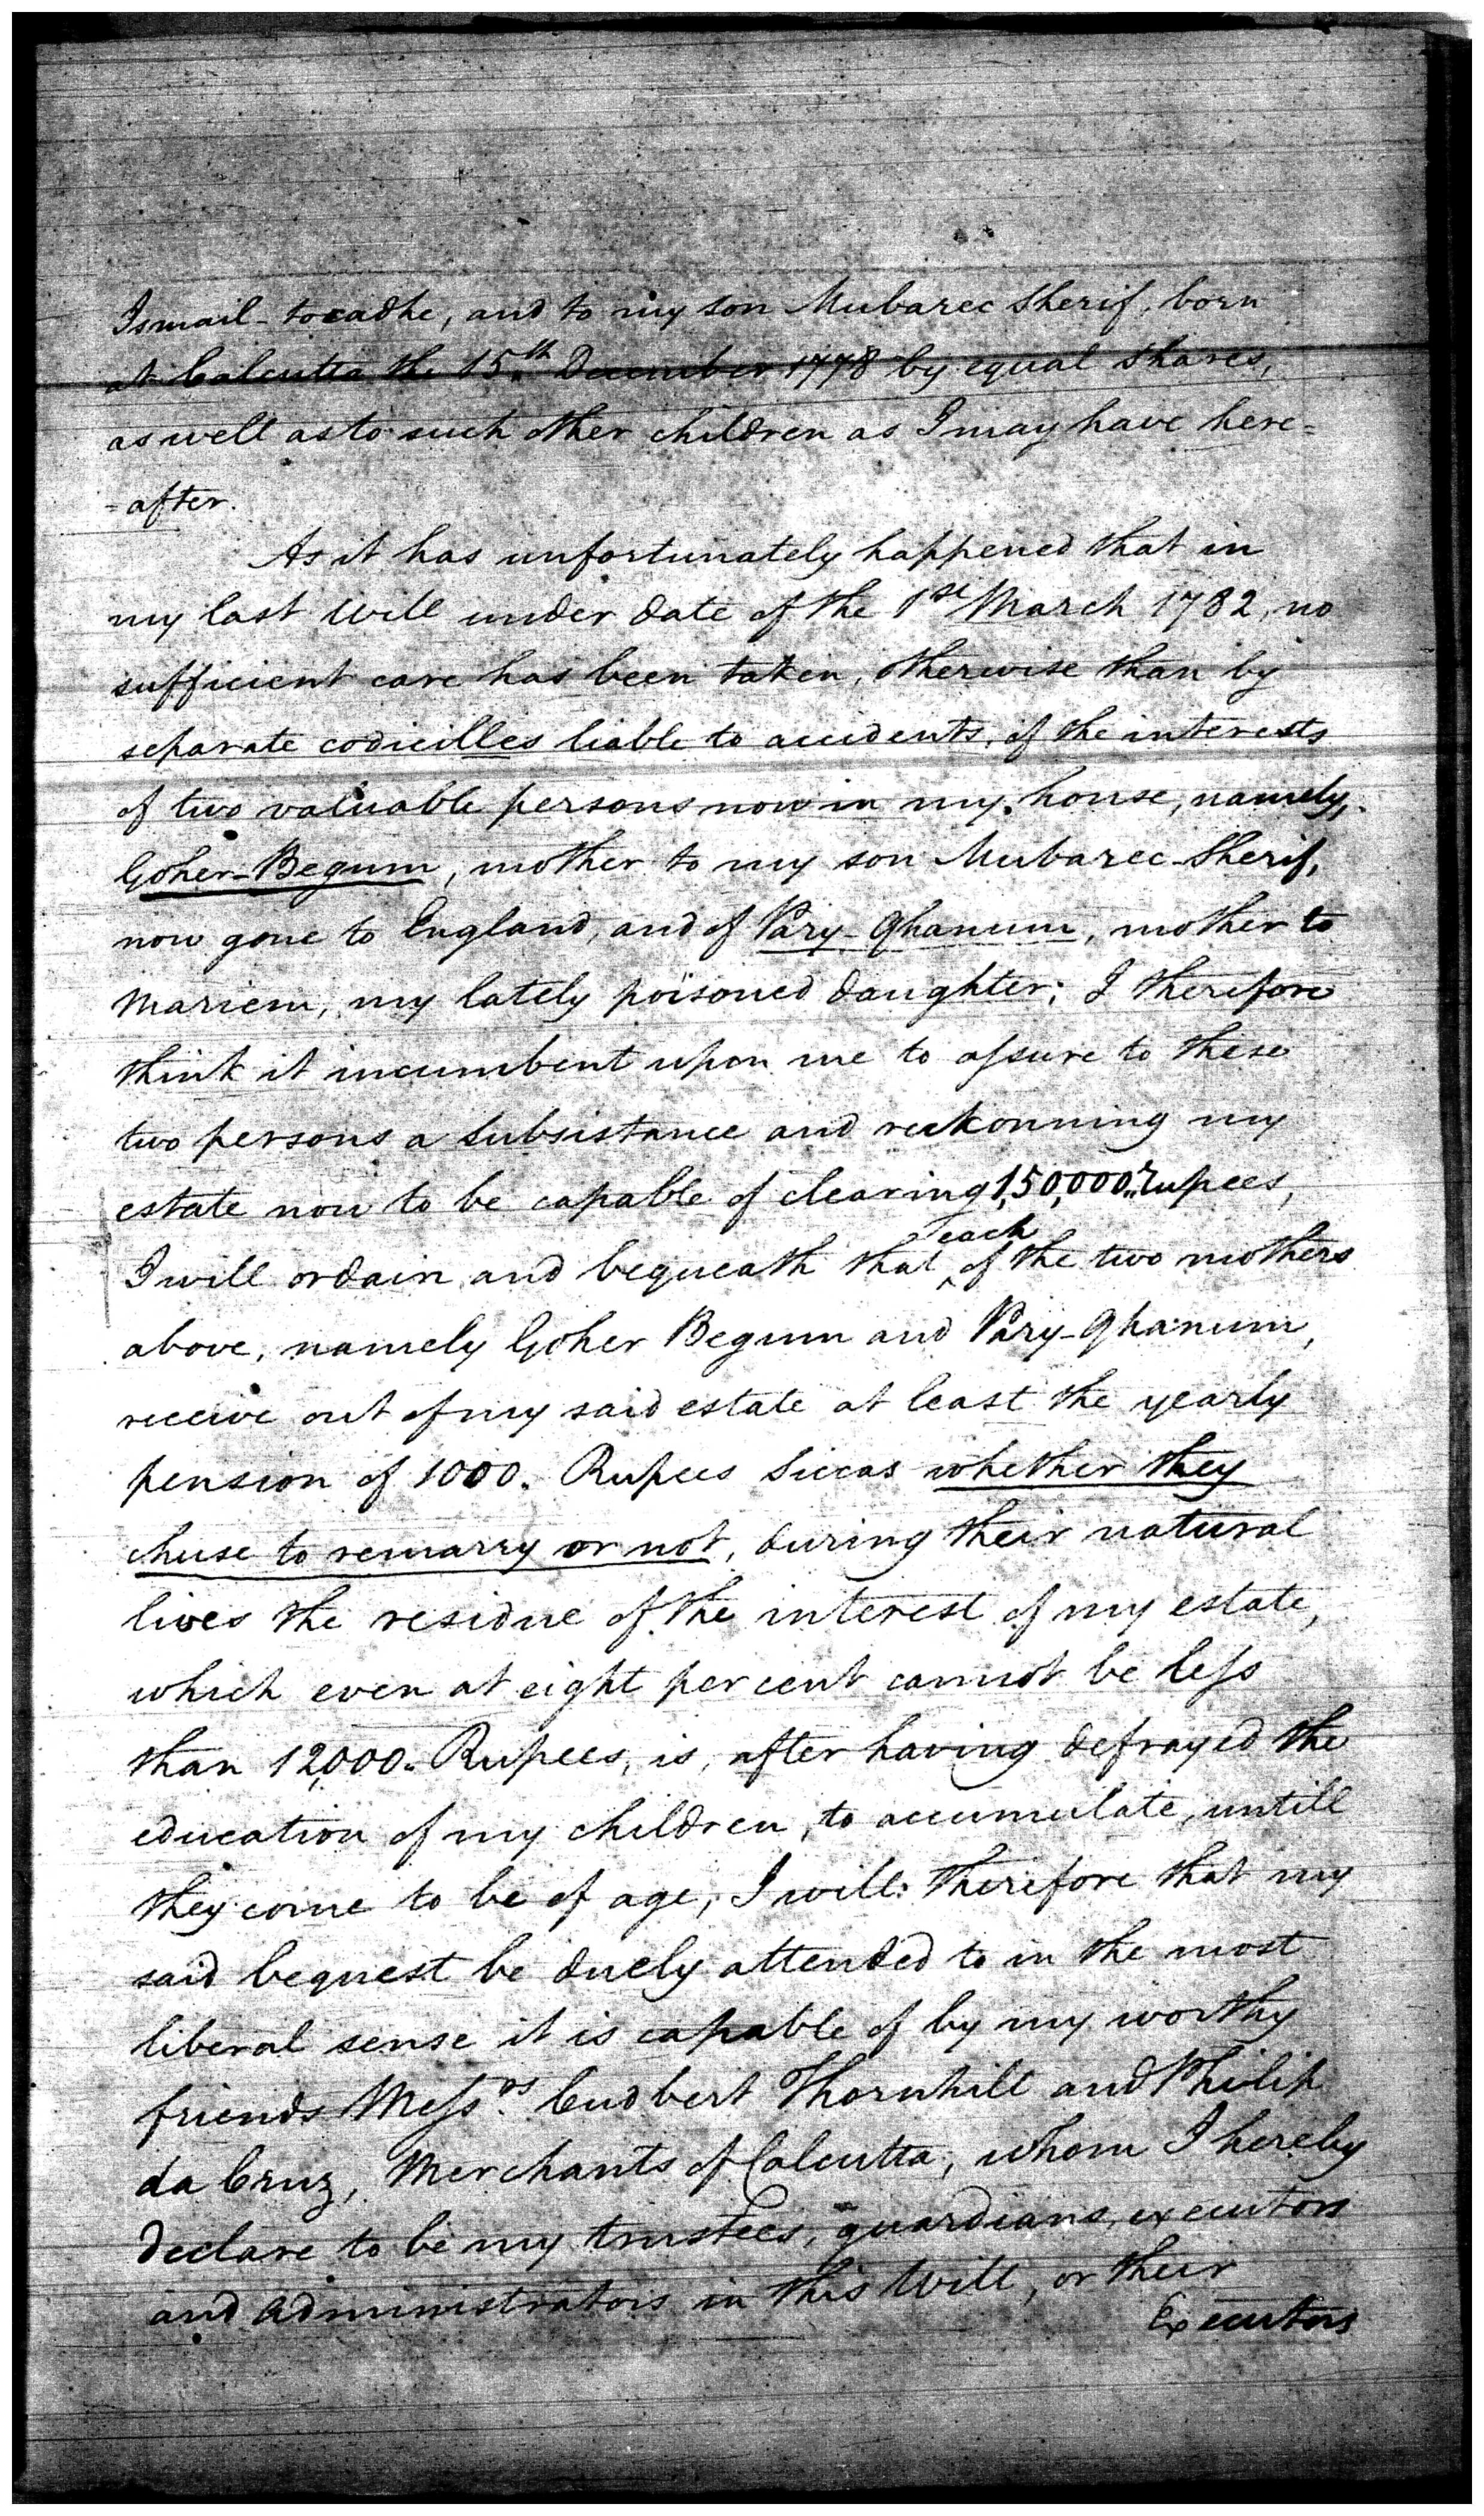 Ismail-tocadhe, and to my son Mubarec Sherif, born
at Calcutta the 15th December 1778 by equal shares,
as well as to such other children as I may have here=
=after.
As it has unfortunately happened that in
my last Will under date of the 1st March 1782, no
sufficient care has been taken, otherwise than by
separate codicilles liable to accidents, of the interests
of two valuable persons now in my house, namely,
Goher-Begum, mother to my son Mubarec-Sherif,
now gone to England, and of Pary-Ghanum, mother to
Mariem, my lately poïsoned daughter; I therefore
think it incumbent upon me to assure to these
two persons a subsistance and reckonning my
estate now to be capable of clearing 150,000 rupees,
I will ordain and bequeath that each of the two mothers
above, namely Goher Begum and Pary-Ghanum,
receive out of my said estate at least the yearly
pension of 1000. Rupees Siccas whether they
chuse to remarry or not, during their natural
lives the residue of the interest of my estate,
which even at eight per cent cannot be less
than 12,000. Rupees, is, after having defrayed the
education of my children, to accumulate, untill
they come to be of age; I will: therefore that my
said bequest be duely attended to in the most
liberal sense it is capable of by my worthy
friends Messrs Cudbert Thornhill and Philip
da Cruz, Merchants of Calcutta, whom I hereby
declare to be my trustees, guardians, executors
and administrators in this Will, or their
Executors